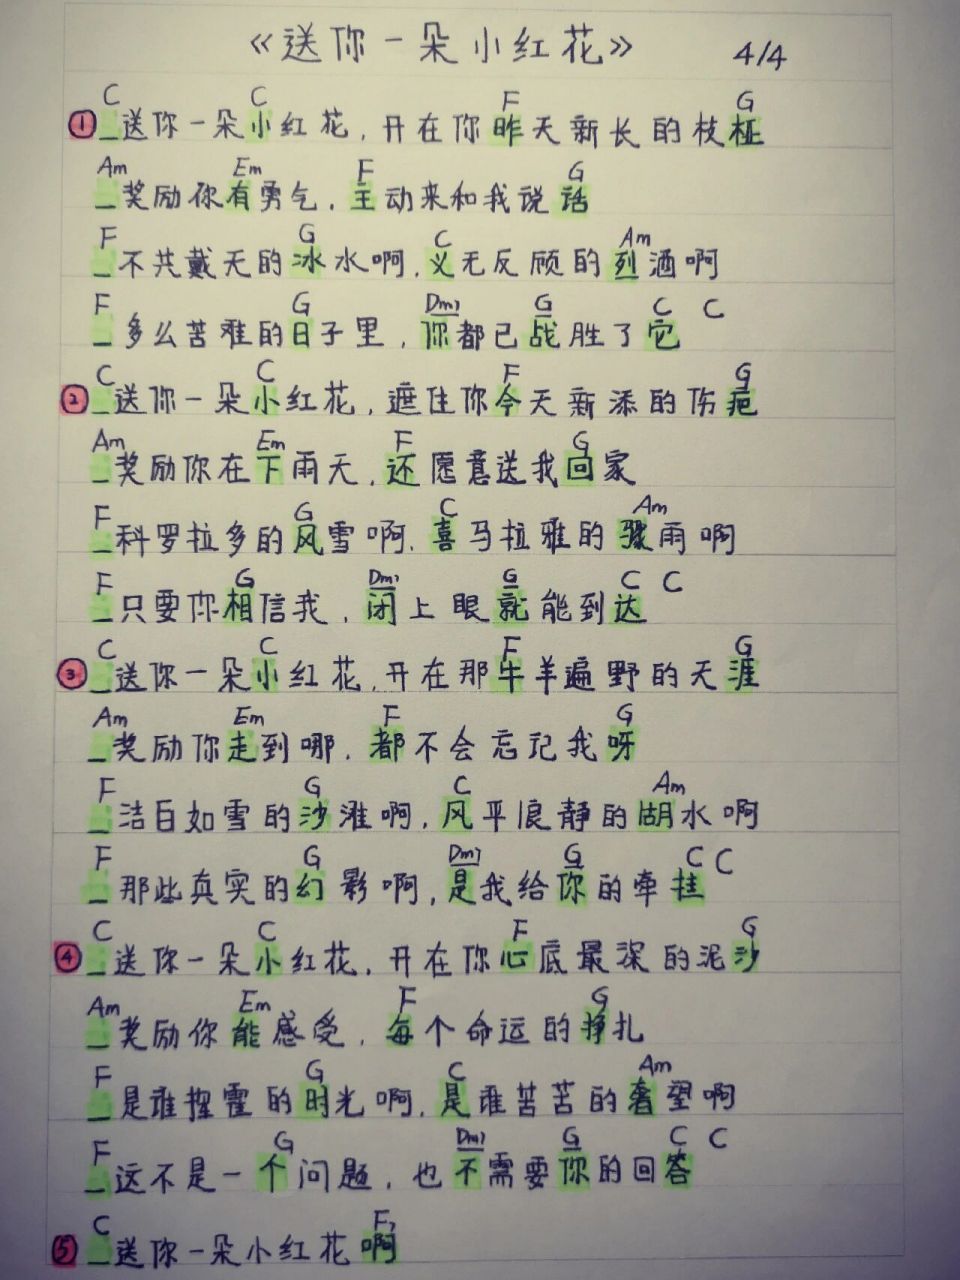 《送你一朵小红花》 4/4
C C F G
① _送你一朵小红花，开在你昨天新长的枝桠
Am Em F G
_奖励你有勇气，主动来和我说话
F G C Am
_不共戴天的冰水啊，义无反顾的烈酒啊
F G Dm7 G C C
_多么苦难的日子里，你都已战胜了它
C C F G
② _送你一朵小红花，遮住你今天新添的伤疤
Am Em F G
_奖励你在下雨天，还愿意送我回家
F G C Am
_科罗拉多的风雪啊，喜马拉雅的骤雨啊
F G Dm7 G C C
_只要你相信我，闭上眼就能到达
C C F G
③ _送你一朵小红花，开在那牛羊遍野的天涯
Am Em F G
_奖励你走到哪，都不会忘记我呀
F G C Am
_洁白如雪的沙滩啊，风平浪静的湖水啊
F G Dm7 G C C
_那些真实的幻影啊，是我给你的牵挂
C C F G
④ _送你一朵小红花，开在你心底最深的泥沙
Am Em F G
_奖励你能感受，每个命运的挣扎
F G C Am
_是谁挥霍的时光啊，是谁苦苦的奢望啊
F G Dm7 G C C
_这不是一个问题，也不需要你的回答
C F7
⑤ _送你一朵小红花啊